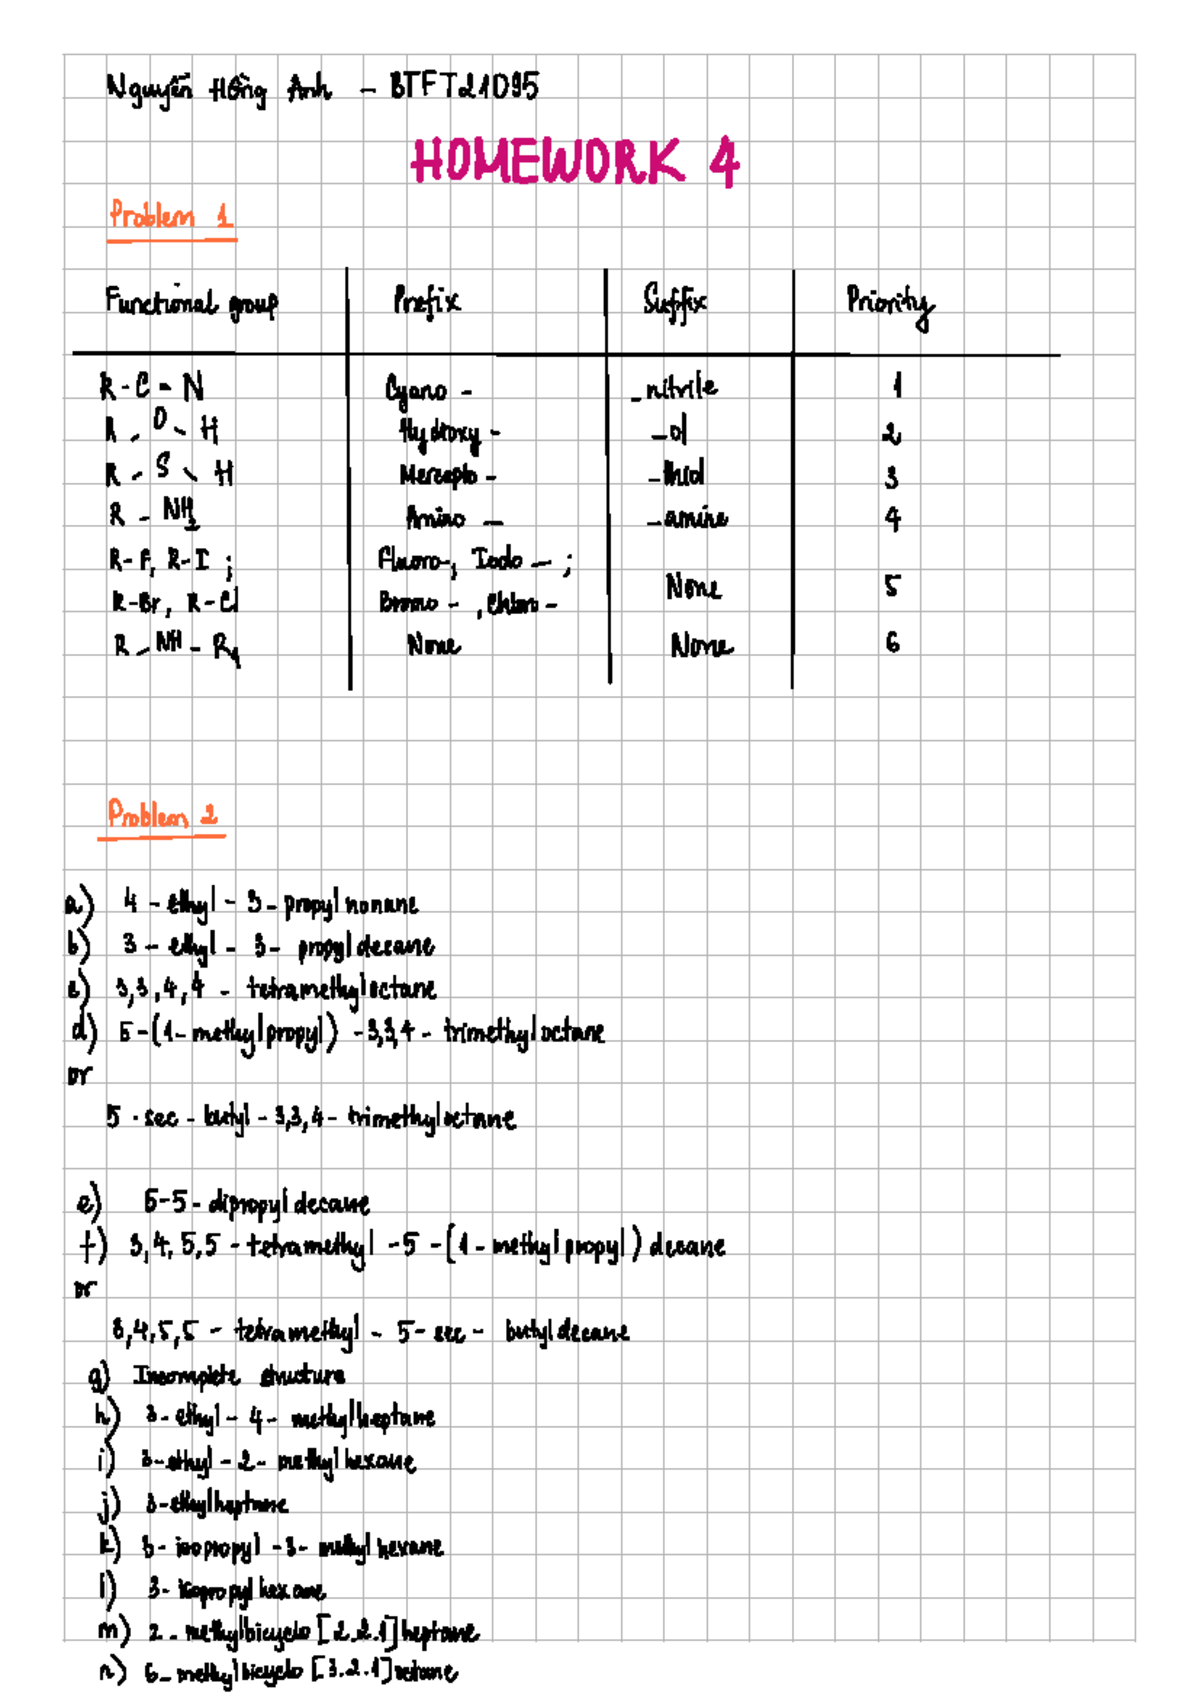 Nguyễn Hồng Anh - BTFT21095
HOMEWORK 4
Problem 1
Functional group Prefix Suffix Priority
R-C=N Cyano - _nitrile 1
R - O - H Hydroxy - _ol 2
R - S - H Mercapto - _thiol 3
R - NH2 Amino - _amine 4
R-F, R-I ; Fluoro-, Iodo - ;
R-Br, R-Cl Bromo - , Chloro - None 5
R - NH - R1 None None 6
Problem 2
a) 4 - ethyl - 3 - propylnonane
b) 3 - ethyl - 3 - propyldecane
c) 3,3,4,4 - tetramethyloctane
d) 5-(1-methylpropyl) -3,3,4 - trimethyloctane
or
5 - sec - butyl - 3,3,4 - trimethyloctane
e) 5-5 - dipropyldecane
f) 3,4,5,5 - tetramethyl -5 -(1 - methylpropyl) decane
or
3,4,5,5 - tetramethyl - 5 - sec - butyldecane
g) Incomplete structure
h) 3-ethyl - 4 - methylheptane
i) 3-ethyl - 2 - methylhexane
j) 3-ethylheptane
k) 3- isopropyl -3- methylhexane
l) 3- isopropylhexane
m) 2 - methylbicyclo [2.2.1] heptane
n) 6 - methylbicyclo [3.2.1] octane